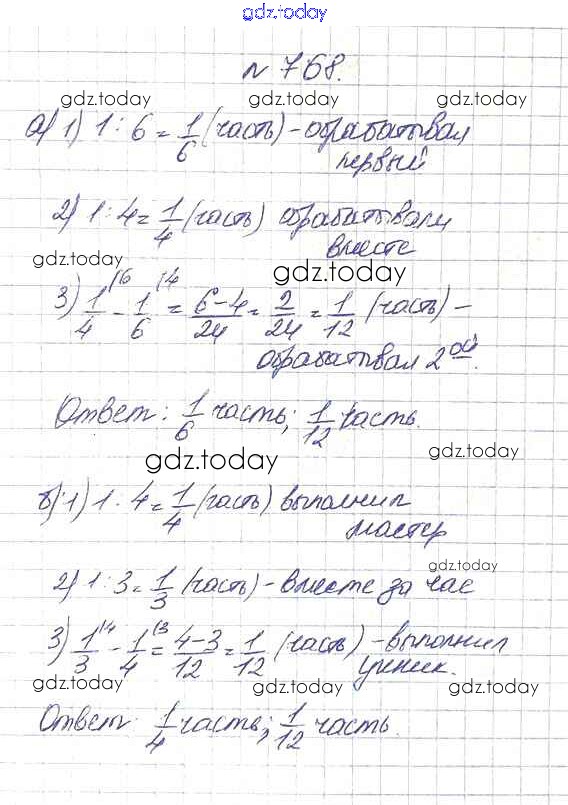 gdz.today
№ 768.
gdz.today gdz.today gdz.today
а) 1) 1 : 6 = 1/6 (часть) - обрабатывал
первый
2) 1 : 4 = 1/4 (часть) обрабатывали
вместе
gdz.today
gdz.today
3) 1/4 \6 - 1/6 \4 = 6-4/24 = 2/24 = 1/12 (часть) -
обрабатывал 2ой.
Ответ: 1/6 часть; 1/12 часть.
gdz.today gdz.today
б) 1) 1 : 4 = 1/4 (часть) выполнил
мастер
gdz.today
2) 1 : 3 = 1/3 (часть) - вместе за час
3) 1/3 \4 - 1/4 \3 = 4-3/12 = 1/12 (часть) - выполнил
ученик.
gdz.today gdz.today gdz.today
Ответ: 1/4 часть; 1/12 часть.